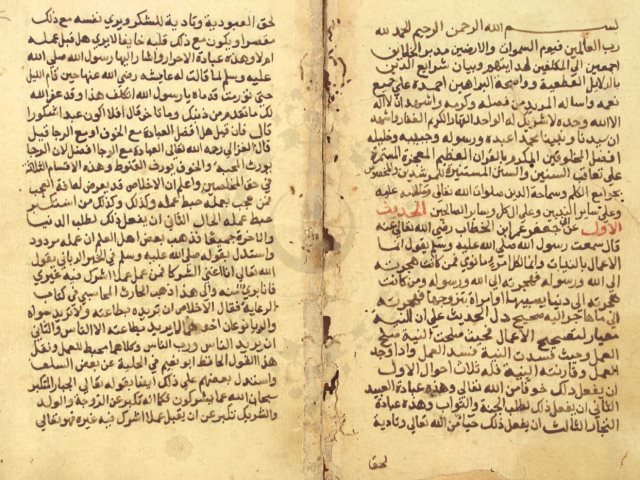 بسم الله الرحمن الرحيم الحمد لله
رب العالمين قيوم السموات والارضين مدبر الخلائق
اجمعين الى المكلفين لهدايتهم وبيان شرايع الدين
بالدلايل القطعية وواضحة البراهين احمده على جميع
نعمه واساله المزيد من فضله وكرمه واشهد ان لا اله
الا الله وحده لا شريك له الواحد القهار الكريم الغفار واشهد
ان سيدنا ونبينا محمدا عبده ورسوله وحبيبه وخليله
افضل المخلوقين المكرم بالقران العظيم المعجزة المستمرة
على تعاقب السنين والسنن المستنيرة للمسترشدين المخصوص
بجوامع الكلم وسماحة الدين صلوات الله تعالى وسلامه عليه
وعلى ساير النبيين وعلى ال كل وساير الصالحين الحديث
الاول عن ابي حفص عمر ابن الخطاب رضي الله تعالى عنه
قال سمعت رسول الله صلى الله عليه وسلم يقول انما
الاعمال بالنيات وانما لكل امرئ مانوى فمن كانت هجرته
الى الله ورسوله فهجرته الى الله ورسوله ومن كانت
هجرته الى دنيا يصيبها او امراة يتزوجها فهجرته
الى ما هاجر اليه صحيح دل الحديث على ان النية
معيار لتصحيح الاعمال فحيث صلحت النية صلح
العمل وحيث فسدت النية فسد العمل واذا وجد
العمل وقارنته النية فله ثلاث احوال الاول
ان يفعل ذلك خوفا من الله تعالى وهذه عبادة العبيد
الثاني ان يفعل ذلك لطلب الجنة والثواب وهذه عبادة
التجار الثالث ان يفعل ذلك حياء من الله تعالى وتادية
لحق
لحق العبودية وتادية للشكر ويرى نفسه مع ذلك
مقصرا ويكون مع ذلك قلبه خايفا لا يرى هل قبل عمله
ام لا وهذه عبادة الاحرار واليها اشار رسول الله صلى الله
عليه وسلم لما قالت له عايشة رضي الله عنها حين قام الليل
حتى تورمت قدماه يا رسول الله اتكلف هذا وقد غفر الله
لك ما تقدم من ذنبك وما تاخر قال افلا اكون عبدا شكورا
قال فان قيل هل افضل العبادة مع الخوف او مع الرجا قيل
قال الغزالي رحمه الله تعالى العبادة مع الرجا افضل لان الرجا
يورث المحبة والخوف يورث القنوط وهذه الاقسام الثلاثة
في حق المخلصين واعلم ان الاخلاص قد يعرض له افة العجب
فمن عجب بعمله حبط عمله وكذلك من استكبر
حبط عمله الحال الثاني ان يفعل ذلك لطلب الدنيا
والاخرة جميعا فذهب بعض اهل العلم ان عمله مردود
واستدل بقوله صلى الله عليه وسلم في الخبر الرباني يقول
الله تعالى انا اغنى الشركا فمن عمل عملا اشرك فيه غيري
فانا برئ منه والى هذا ذهب الحارث المحاسبي في كتاب
الرعاية فقال الاخلاص ان تريده بطاعته ولا تريد سواه
والريا نوعان احدهما لا يريد بطاعته الا الناس والثاني
ان يريد الناس ورب الناس وكلاهما محبط للعمل ونقل
هذا القول الحافظ ابو نعيم في الحلية عن بعض السلف
واستدل بعضهم على ذلك ايضا بقوله تعالى الجبار المتكبر
سبحان الله عما يشركون فكما انه تكبر عن الزوجة والولد
والشريك تكبر عن ان يقبل عملا اشرك فيه غيره فهو تعالى